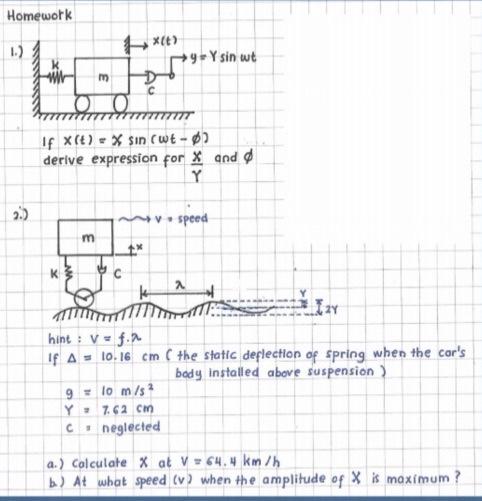 Homework
1.)
x(t)
y = Y sin wt
k
m
c
If x(t) = X sin (wt - ø)
derive expression for X/Y and ø
2.)
v = speed
m
x
K
C
λ
Y
2Y
hint : V = f.λ
If Δ = 10.16 cm ( the static deflection of spring when the car's
body installed above suspension )
g = 10 m/s²
Y = 7.62 cm
C = neglected
a.) Calculate X at V = 64.4 km/h
b.) At what speed (v) when the amplitude of X is maximum ?